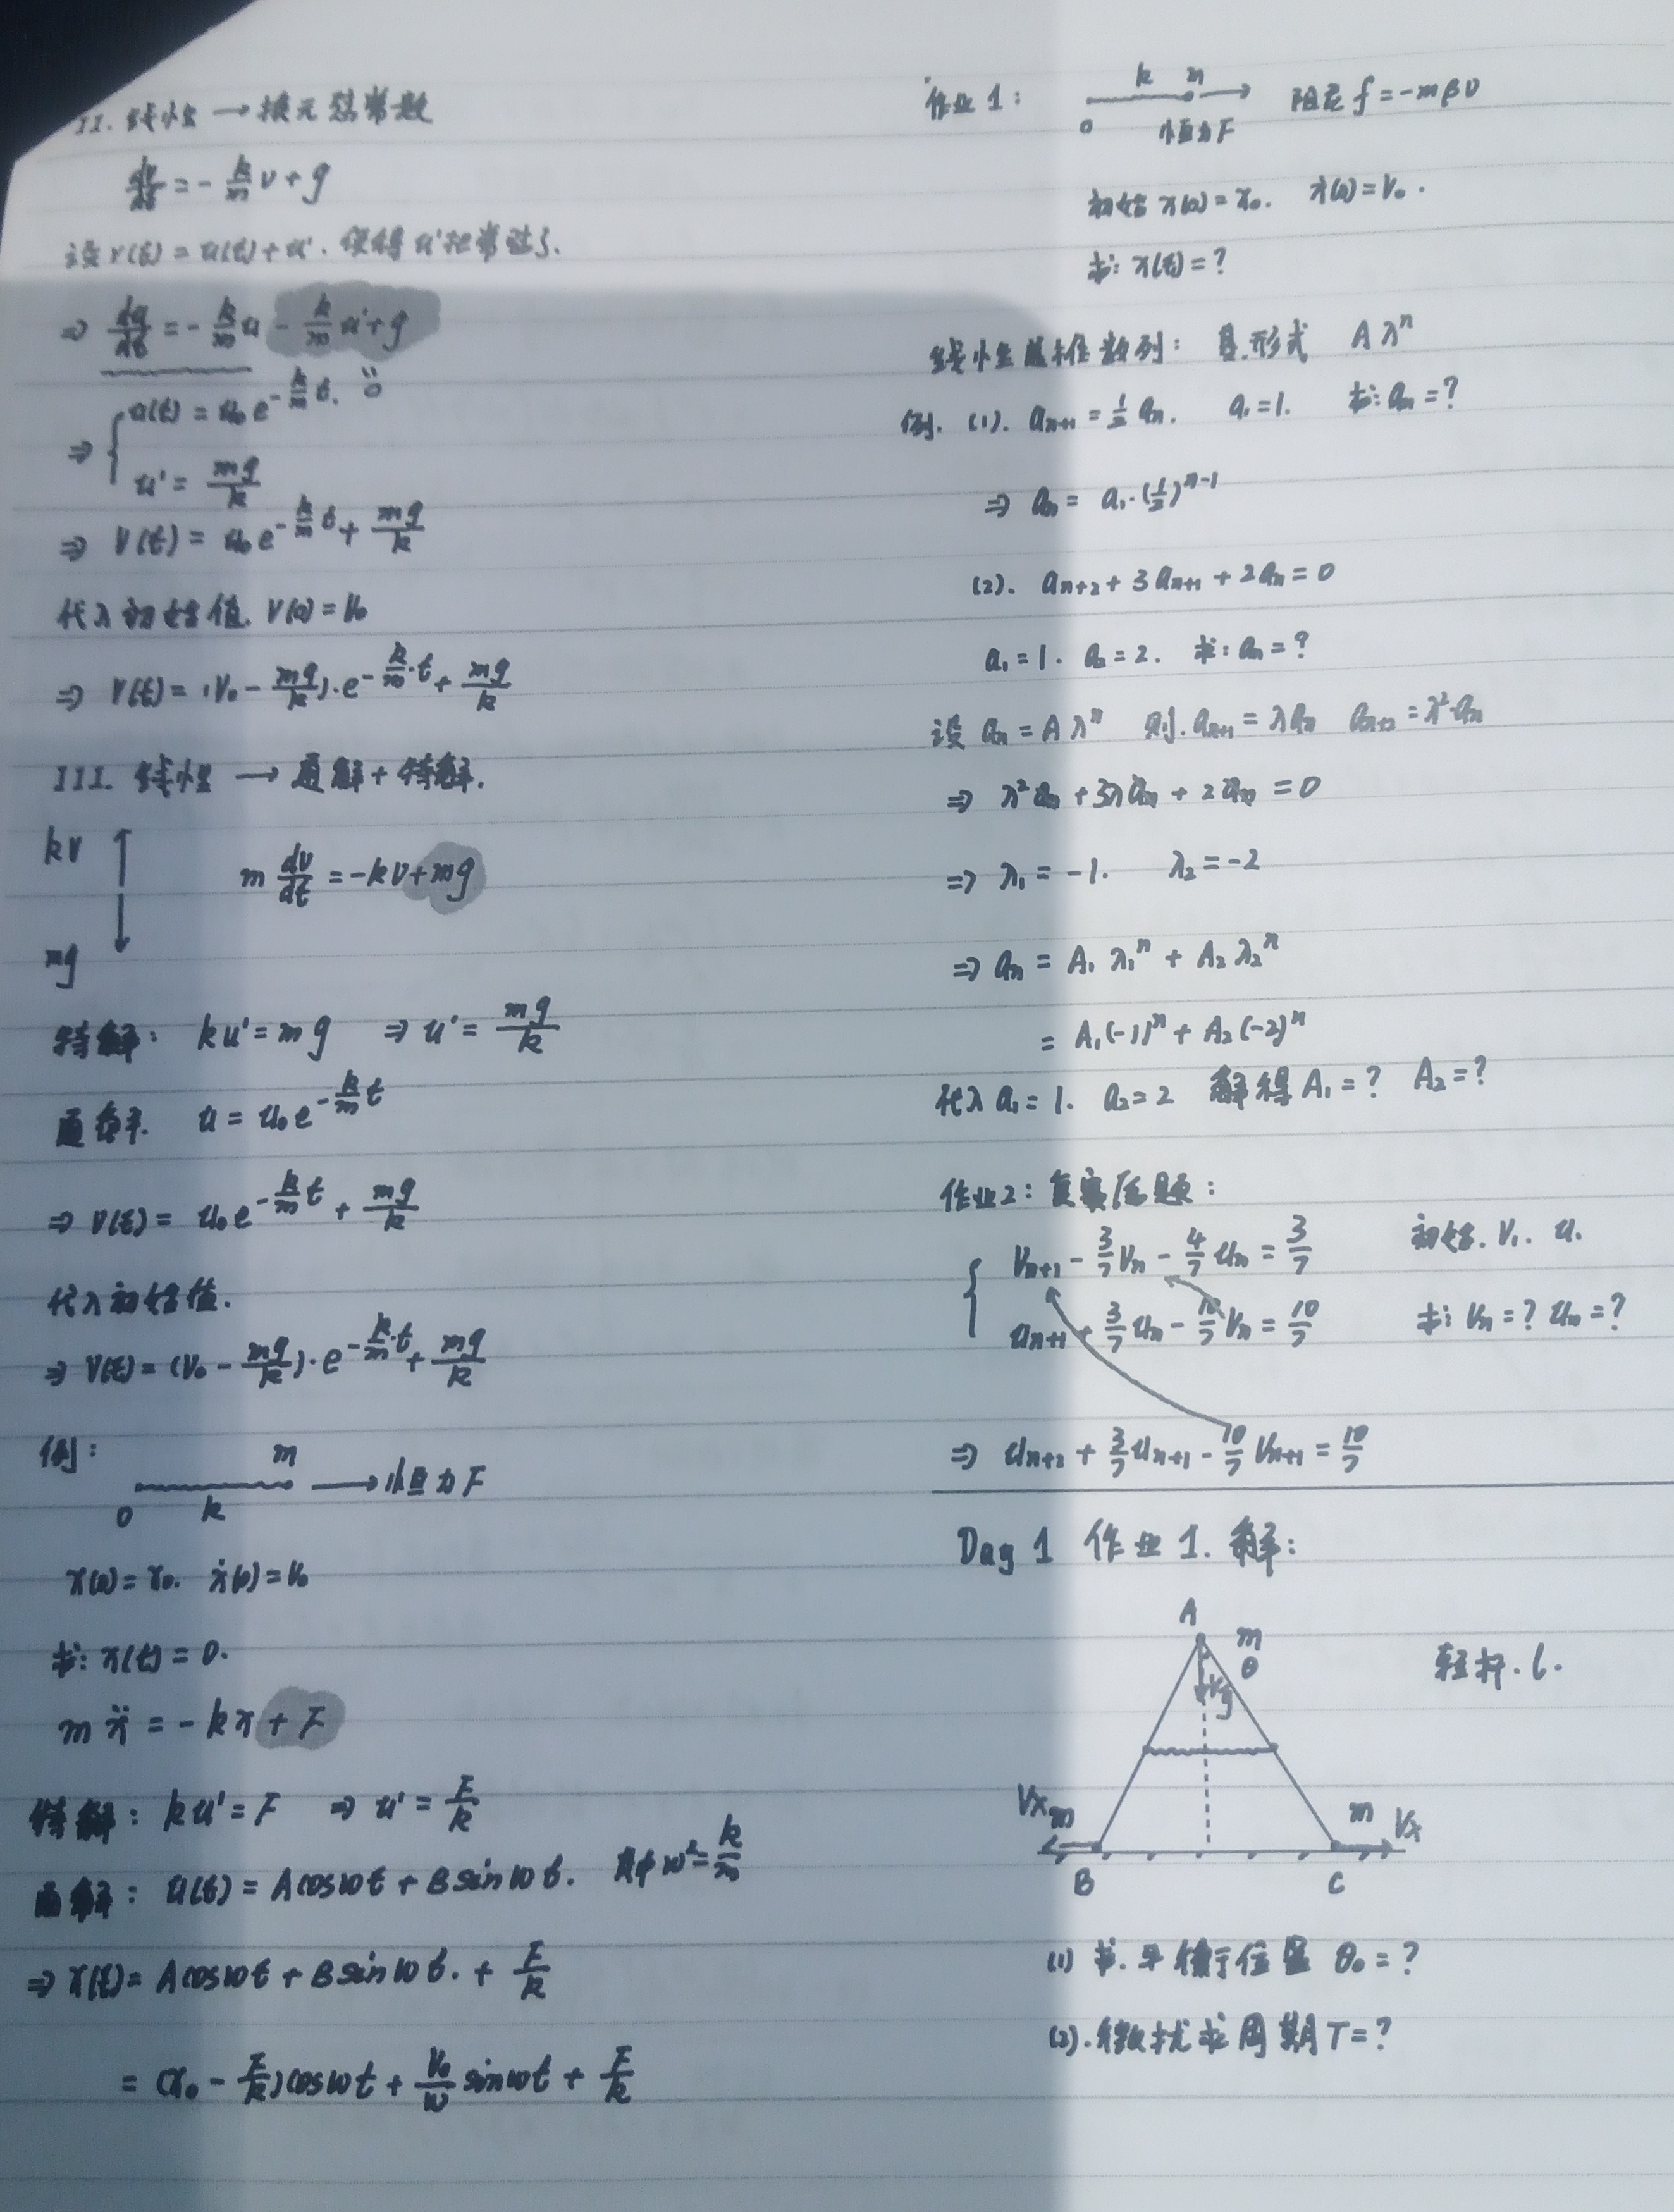 II. 线性 → 换元怼常数
dv/dt = - k/m v + g
设 v(t) = u(t) + u'. 使得 u' 把常怼了.
⇒ du/dt = - k/m u - k/m u' + g
⇒ { u(t) = u₀ e^(-k/m t).
u' = mg/k
⇒ v(t) = u₀ e^(-k/m t) + mg/k
代入初始值. v(0) = v₀
⇒ v(t) = (v₀ - mg/k)·e^(-k/m·t) + mg/k
III. 线性 → 通解 + 特解.
kv
m dv/dt = -kv + mg
mg
特解: ku' = mg ⇒ u' = mg/k
通解. u = u₀ e^(-k/m t)
⇒ v(t) = u₀ e^(-k/m t) + mg/k
代入初始值.
⇒ v(t) = (v₀ - mg/k)·e^(-k/m·t) + mg/k
例: m → 恒力 F
0 k
x(0) = x₀. ẋ(0) = v₀
求: x(t) = 0.
m ẍ = -kx + F
特解: ku' = F ⇒ u' = F/k
通解: u(t) = A cosωt + B sinωt. 其中 ω² = k/m
⇒ x(t) = A cosωt + B sinωt. + F/k
= (x₀ - F/k) cosωt + v₀/ω sinωt + F/k
作业1: k m 阻尼 f = -mβv
0 恒力 F
初始 x(0) = x₀. ẋ(0) = v₀.
求: x(t) = ?
线性递推数列: 基形式 Aλⁿ
例. (1). aₙ₊₁ = 1/2 aₙ. a₁ = 1. 求: aₙ = ?
⇒ aₙ = a₁·(1/2)ⁿ⁻¹
(2). aₙ₊₂ + 3aₙ₊₁ + 2aₙ = 0
a₁ = 1. a₂ = 2. 求: aₙ = ?
设 aₙ = Aλⁿ 则. aₙ₊₁ = λaₙ aₙ₊₂ = λ²·aₙ
⇒ λ²aₙ + 3λaₙ + 2aₙ = 0
⇒ λ₁ = -1. λ₂ = -2
⇒ aₙ = A₁λ₁ⁿ + A₂λ₂ⁿ
= A₁(-1)ⁿ + A₂(-2)ⁿ
代入 a₁ = 1. a₂ = 2 解得 A₁ = ? A₂ = ?
作业2: 复赛压题:
{ vₙ₊₁ - 3/7 vₙ - 4/7 uₙ = 3/7 初始. v₁. u₁
uₙ₊₁ + 3/7 uₙ - 10/7 vₙ = 10/7 求: vₙ = ? uₙ = ?
⇒ uₙ₊₂ + 3/7 uₙ₊₁ - 10/7 vₙ₊₁ = 10/7
Day 1 作业 1. 解:
A m
θ 轻杆. l.
Vy
Vx m m Vx
B C
(1) 求. 平衡位置 θ₀ = ?
(2). 微扰求周期 T = ?